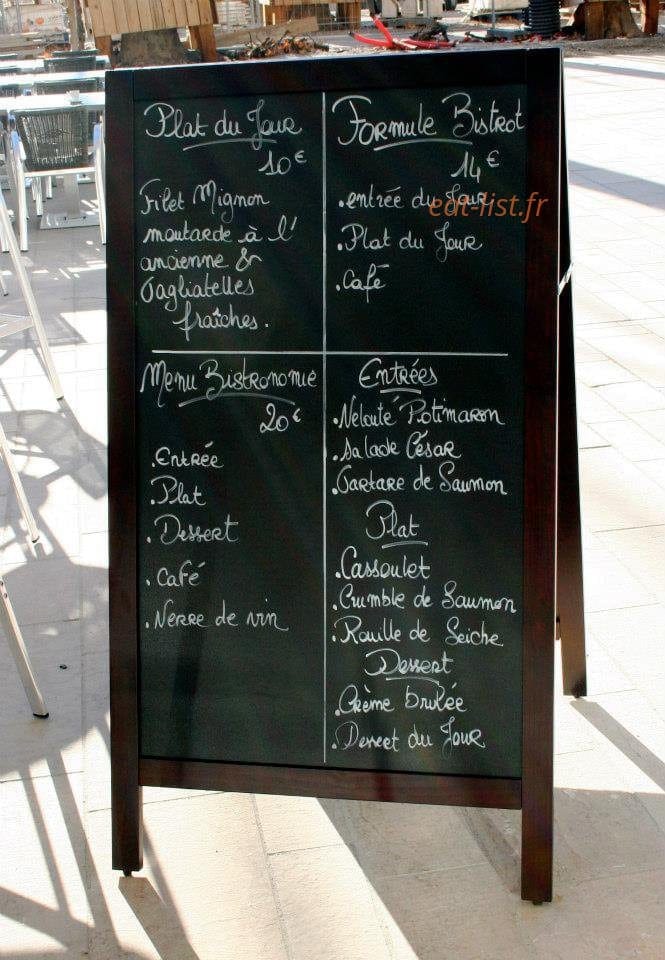 Plat du Jour
10€
Filet Mignon
moutarde à l'
ancienne &
Tagliatelles
fraîches.
Formule Bistrot
14€
.entrée du Jour
eat-list.fr
.Plat du Jour
.café
Menu Bistronomie
20€
.Entrée
.Plat
.Dessert
.Café
.Verre de vin
Entrées
.Velouté Potimaron
.salade César
.Tartare de Saumon
Plat
.Cassoulet
.Crumble de Saumon
.Rouille de Seiche
Dessert
.Crème brulée
.Dessert du Jour